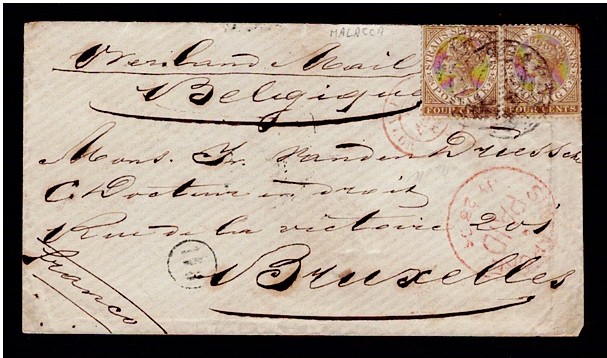 MALACCA
Overland Mail
Belgique
STRAITS SETTLEMENTS
POSTAGE
FOUR CENTS
STRAITS SETTLEMENTS
POSTAGE
FOUR CENTS
Mons. Fr. Vanden Driessche
Docteur en droit
Rue de la victoire 205
PAID
Bruxelles
franco